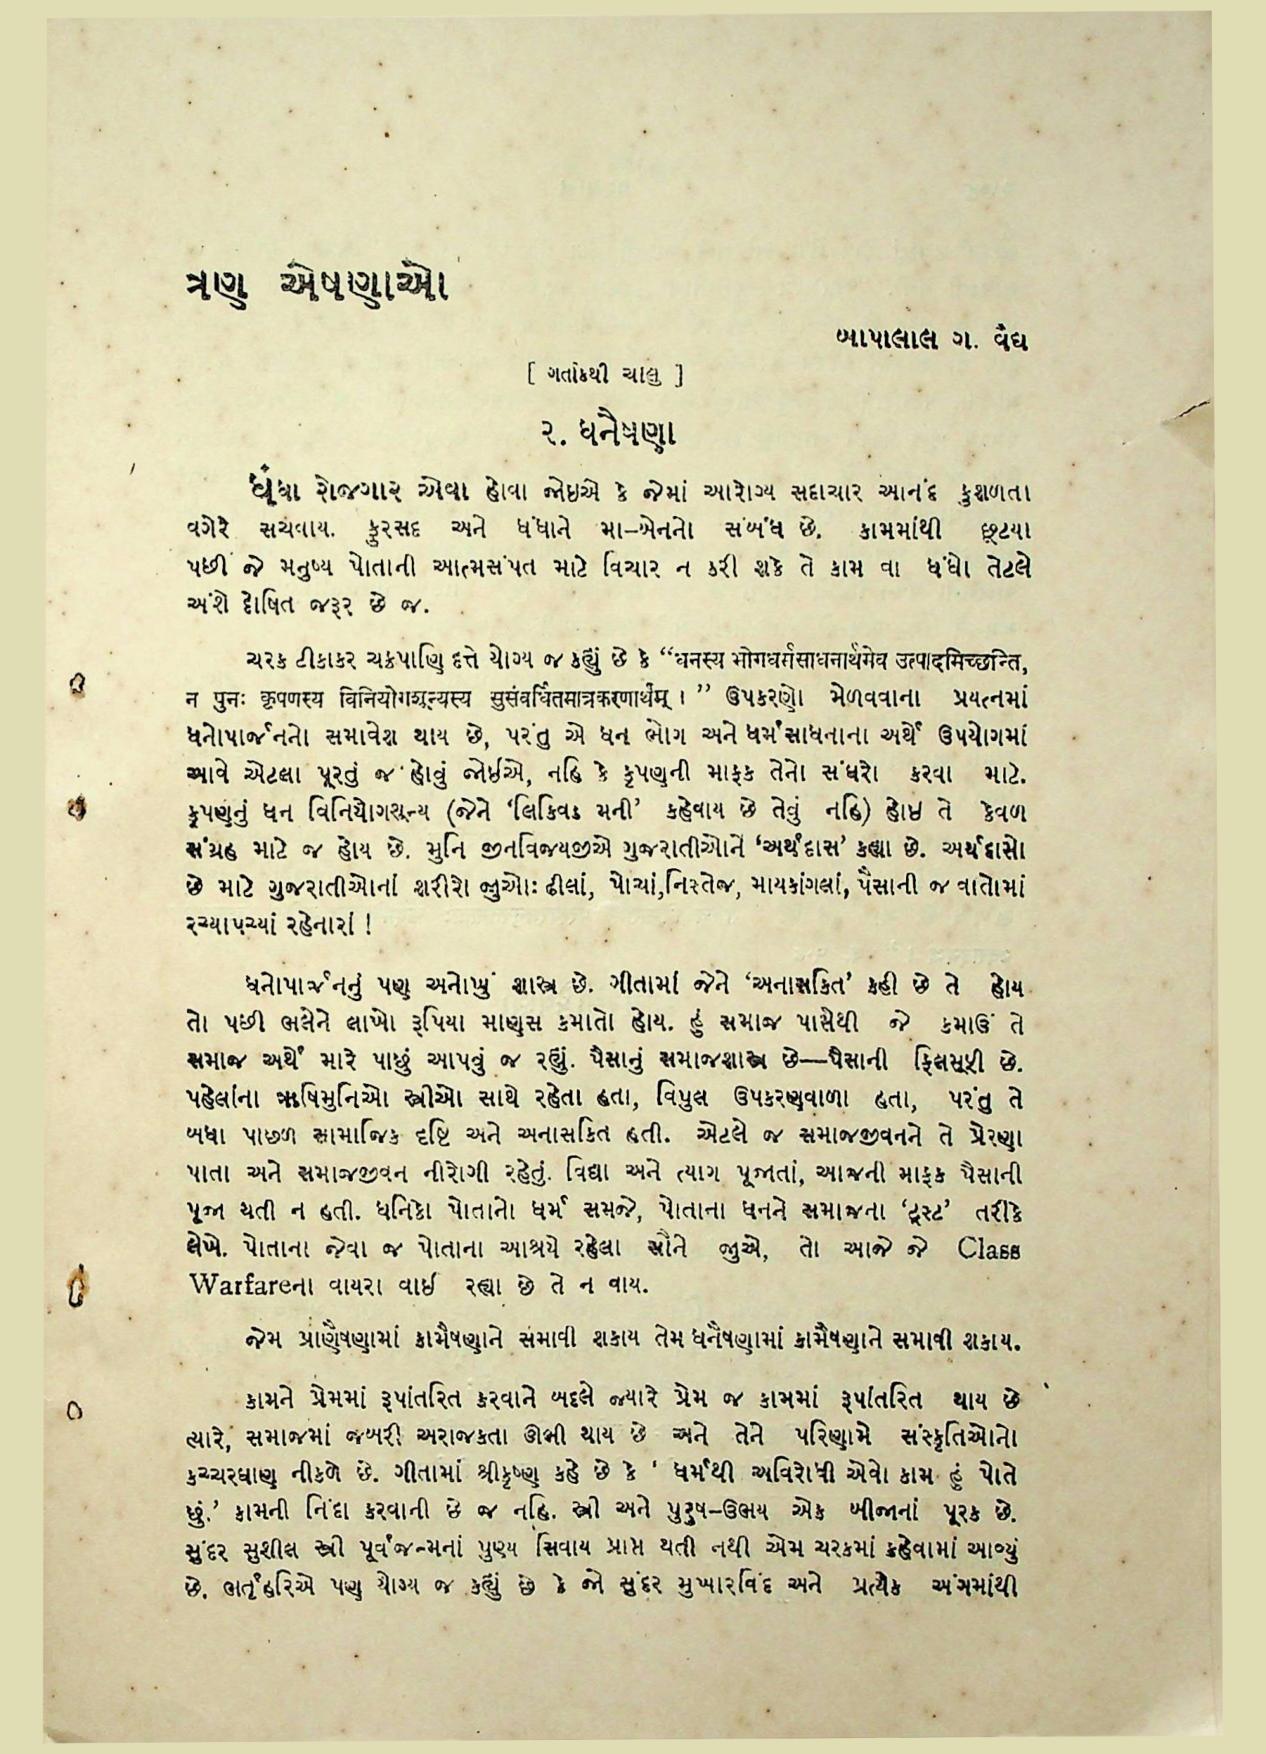 ત્રણ એષણાઓ
બાપાલાલ ગ. વૈદ્ય
[ ગતાંકથી ચાલુ ]
૨. ધનૈષણા
ધંધા રોજગાર એવા હોવા જોઇએ કે જેમાં આરોગ્ય સદાચાર આનંદ કુશળતા
વગેરે સચવાય. ફુરસદ અને ધંધાને મા-બેનનો સંબંધ છે. કામમાંથી છૂટયા
પછી જે મનુષ્ય પોતાની આત્મસંપત માટે વિચાર ન કરી શકે તે કામ વા ધંધો તેટલે
અંશે દોષિત જરૂર છે જ.
ચરક ટીકાકર ચક્રપાણિ દત્તે યોગ્ય જ કહ્યું છે કે “धनस्य भोगधर्मसाधनार्थमेव उत्पादमिच्छन्ति,
न पुनः कृपणस्य विनियोगशून्यस्य सुसंवर्धितमात्रकरणार्थम् ।” ઉપકરણો મેળવવાના પ્રયત્નમાં
ધનોપાર્જનનો સમાવેશ થાય છે, પરંતુ એ ધન ભોગ અને ધર્મસાધનાના અર્થે ઉપયોગમાં
આવે એટલા પૂરતું જ હોવું જોઈએ, નહિ કે કૃપણની માફક તેનો સંઘરો કરવા માટે.
કૃપણનું ધન વિનિયોગશૂન્ય (જેને ‘લિકિવડ મની’ કહેવાય છે તેવું નહિ) હોઇ તે કેવળ
સંગ્રહ માટે જ હોય છે. મુનિ જીનવિજયજીએ ગુજરાતીઓને ‘અર્થદાસ’ કહ્યા છે. અર્થદાસો
છે માટે ગુજરાતીઓનાં શરીરો જુઓઃ ઢીલાં, પોચાં,નિસ્તેજ, માયકાંગલાં, પૈસાની જ વાતોમાં
રચ્યાપચ્યાં રહેનારાં !
ધનોપાર્જનનું પણ અનોખું શાસ્ત્ર છે. ગીતામાં જેને ‘અનાસકિત’ કહી છે તે હોય
તો પછી ભલેને લાખો રૂપિયા માણસ કમાતો હોય. હું સમાજ પાસેથી જે કમાઉં તે
સમાજ અર્થે મારે પાછું આપવું જ રહ્યું. પૈસાનું સમાજશાસ્ત્ર છે—પૈસાની ફિલસૂફી છે.
પહેલાંના ઋષિમુનિઓ સ્ત્રીઓ સાથે રહેતા હતા, વિપુલ ઉપકરણવાળા હતા, પરંતુ તે
બધા પાછળ સામાજિક દૃષ્ટિ અને અનાસકિત હતી. એટલે જ સમાજજીવનને તે પ્રેરણા
પાતા અને સમાજજીવન નીરોગી રહેતું. વિદ્યા અને ત્યાગ પૂજાતાં, આજની માફક પૈસાની
પૂજા થતી ન હતી. ધનિકો પોતાનો ધર્મ સમજે, પોતાના ધનને સમાજના ‘ટ્રસ્ટ’ તરીકે
લેખે. પોતાના જેવા જ પોતાના આશ્રયે રહેલા સૌને જુએ, તો આજે જે Class
Warfareના વાયરા વાઈ રહ્યા છે તે ન વાય.
જેમ પ્રાણૈષણામાં કામૈષણાને સમાવી શકાય તેમ ધનૈષણામાં કામૈષણાને સમાવી શકાય.
કામને પ્રેમમાં રૂપાંતરિત કરવાને બદલે જ્યારે પ્રેમ જ કામમાં રૂપાંતરિત થાય છે
ત્યારે, સમાજમાં જબરી અરાજકતા ઊભી થાય છે અને તેને પરિણામે સંસ્કૃતિઓનો
કચ્ચરઘાણ નીકળે છે. ગીતામાં શ્રીકૃષ્ણ કહે છે કે ‘ ધર્મથી અવિરોધી એવો કામ હું પોતે
છું.’ કામની નિંદા કરવાની છે જ નહિ. સ્ત્રી અને પુરુષ-ઉભય એક બીજાનાં પૂરક છે.
સુંદર સુશીલ સ્ત્રી પૂર્વજન્મનાં પુણ્ય સિવાય પ્રાપ્ત થતી નથી એમ ચરકમાં કહેવામાં આવ્યું
છે. ભર્તૃહરિએ પણ યોગ્ય જ કહ્યું છે કે જો સુંદર મુખારવિંદ અને પ્રત્યેક અંગમાંથી